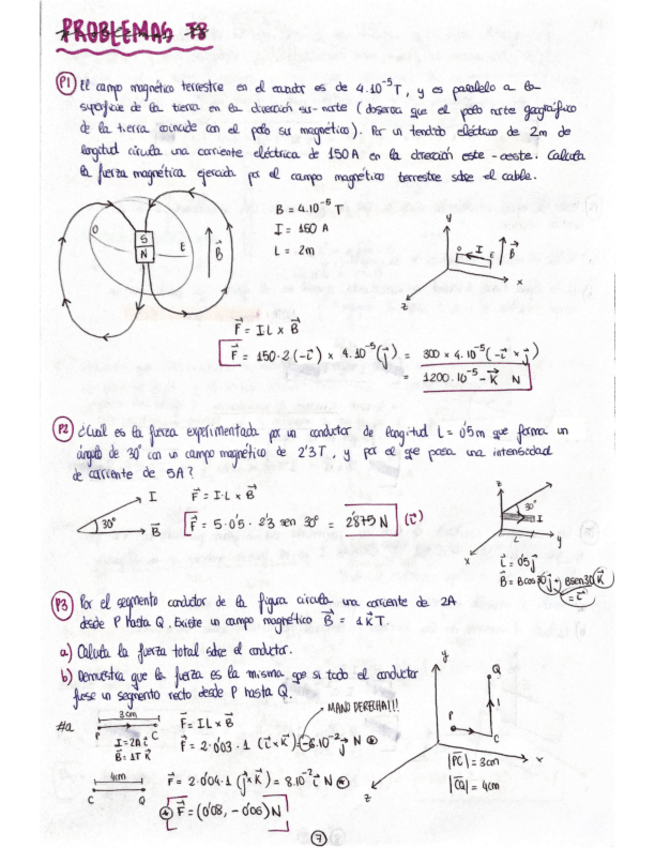 PROBLEMAS T8
P1 El campo magnético terrestre en el ecuador es de 4·10⁻⁵ T, y es paralelo a la
superficie de la tierra en la dirección sur-norte (observa que el polo norte geográfico
de la tierra coincide con el polo sur magnético). Por un tendido eléctrico de 2m de
longitud circula una corriente eléctrica de 150 A en la dirección este-oeste. Calcula
la fuerza magnética ejercida por el campo magnético terrestre sobre el cable.
O S N E B⃗
B = 4·10⁻⁵ T
I = 150 A
L = 2m
y O I E B⃗ x z
F⃗ = I L × B⃗
F⃗ = 150·2 (-i⃗) × 4·10⁻⁵ (j⃗) = 300 × 4·10⁻⁵ (-i⃗ × j⃗)
1200·10⁻⁵ -k⃗ N
P2 ¿Cuál es la fuerza experimentada por un conductor de longitud L = 0'5 m que forma un
ángulo de 30° con un campo magnético de 2'3 T, y por el que pasa una intensidad
de corriente de 5A?
30° I B⃗
F⃗ = I·L × B⃗
F⃗ = 5·0'5·2'3 sen 30° = 2'875 N (i⃗)
z 30° I L y x
L⃗ = 0'5 j⃗
B⃗ = B cos 30 j⃗ + B sen 30 k⃗
= i⃗
P3 Por el segmento conductor de la figura circula una corriente de 2A
desde P hasta Q. Existe un campo magnético B⃗ = 1 k⃗ T.
a) Calcula la fuerza total sobre el conductor.
b) Demuestra que la fuerza es la misma, que si todo el conductor
fuese un segmento recto desde P hasta Q.
MANO DERECHA!!!
#a
3cm
P C
I = 2A i⃗
B⃗ = 1T k⃗
F⃗ = I L × B⃗
F⃗ = 2·0'03·1 (i⃗ × k⃗) = -6·10⁻² j⃗ N
4cm
C Q
F⃗ = 2·0'04·1 (j⃗ × k⃗) = 8·10⁻² i⃗ N
F⃗ = (0'08, -0'06) N
y Q I P C x z
|PC| = 3cm
|CQ| = 4cm
7